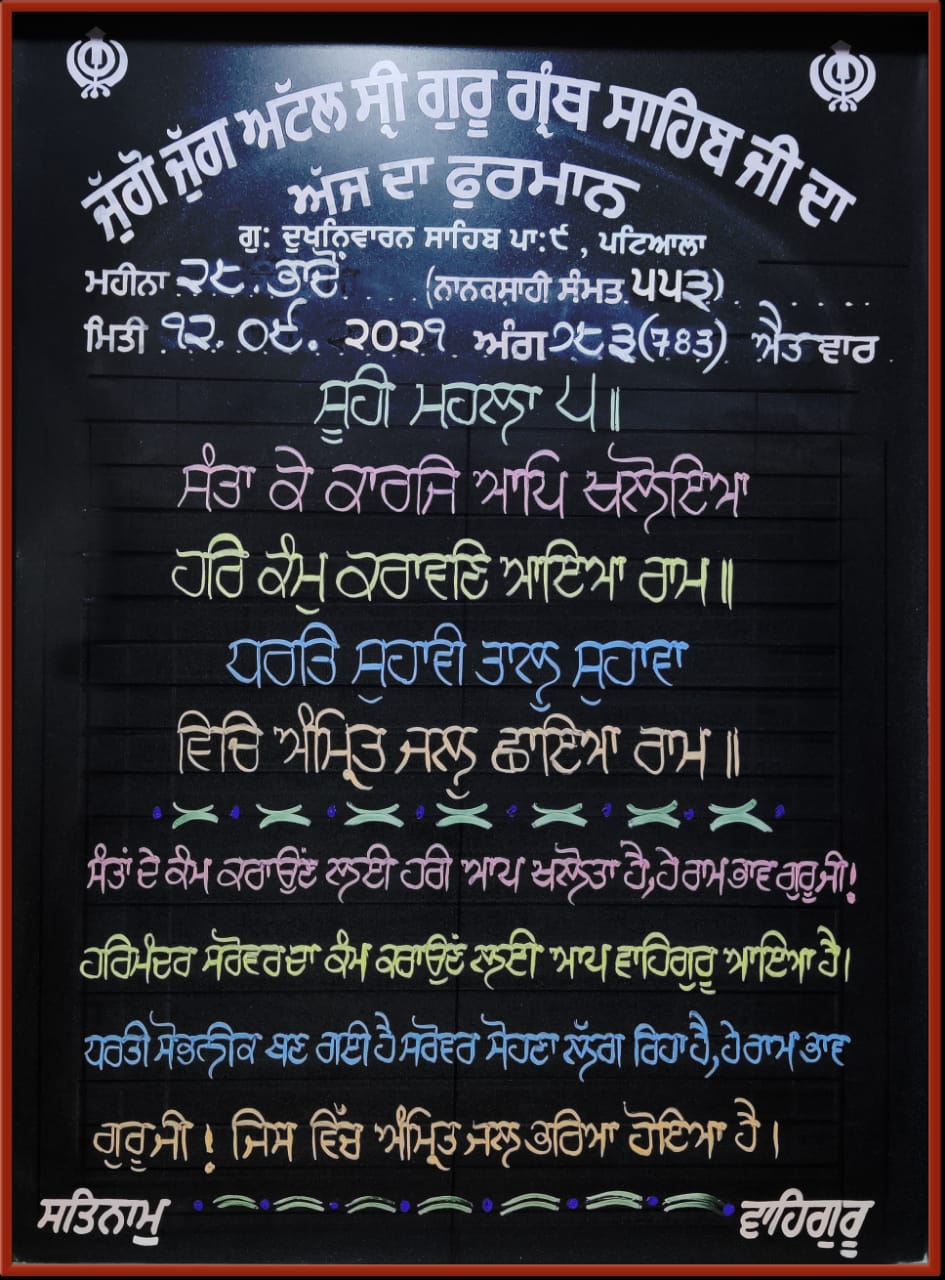 ਜੁੱਗੋ ਜੁੱਗ ਅੱਟਲ ਸ੍ਰੀ ਗੁਰੂ ਗ੍ਰੰਥ ਸਾਹਿਬ ਜੀ ਦਾ
ਅੱਜ ਦਾ ਫੁਰਮਾਨ
ਗੁ: ਦੁਖਨਿਵਾਰਨ ਸਾਹਿਬ ਪਾ:੯ , ਪਟਿਆਲਾ
ਮਹੀਨਾ ੨੮ ਭਾਦੋਂ (ਨਾਨਕਸ਼ਾਹੀ ਸੰਮਤ ੫੫੩)
ਮਿਤੀ ੧੨. ੦੯. ੨੦੨੧ ਅੰਗ ੭੮੩ (783) ਐਤ ਵਾਰ
ਸੂਹੀ ਮਹਲਾ ੫॥
ਸੰਤਾ ਕੇ ਕਾਰਜਿ ਆਪਿ ਖਲੋਇਆ
ਹਰਿ ਕੰਮੁ ਕਰਾਵਣਿ ਆਇਆ ਰਾਮ॥
ਧਰਤਿ ਸੁਹਾਵੀ ਤਾਲੁ ਸੁਹਾਵਾ
ਵਿਚਿ ਅੰਮ੍ਰਿਤ ਜਲੁ ਛਾਇਆ ਰਾਮ॥
ਸੰਤਾਂ ਦੇ ਕੰਮ ਕਰਾਉਣ ਲਈ ਹਰੀ ਆਪ ਖਲੋਤਾ ਹੈ, ਹੇ ਰਾਮ ਭਾਵ ਗੁਰੂ ਜੀ!
ਹਰਿਮੰਦਰ ਸਰੋਵਰ ਦਾ ਕੰਮ ਕਰਾਉਣ ਲਈ ਆਪ ਵਾਹਿਗੁਰੂ ਆਇਆ ਹੈ।
ਧਰਤੀ ਸੋਭਨੀਕ ਬਣ ਗਈ ਹੈ ਸਰੋਵਰ ਸੋਹਣਾ ਲੱਗ ਰਿਹਾ ਹੈ, ਹੇ ਰਾਮ ਭਾਵ
ਗੁਰੂ ਜੀ! ਜਿਸ ਵਿੱਚ ਅੰਮ੍ਰਿਤ ਜਲ ਭਰਿਆ ਹੋਇਆ ਹੈ।
ਸਤਿਨਾਮੁ ਵਾਹਿਗੁਰੂ